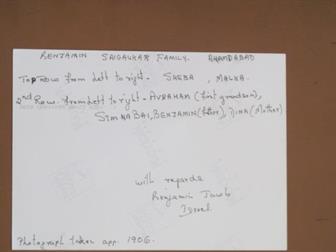 BENJAMIN SAIGALKAR FAMILY. AHMADABAD
Top Row from left to right - SHEBA, MALKA.
2nd Row. from left to right - AVRAHAM (first grandson),
SIMHA BAI, BENJAMIN (father), DINA (Mother)
with regards
Benjamin Jacob
Israel
Photograph taken app. 1906.